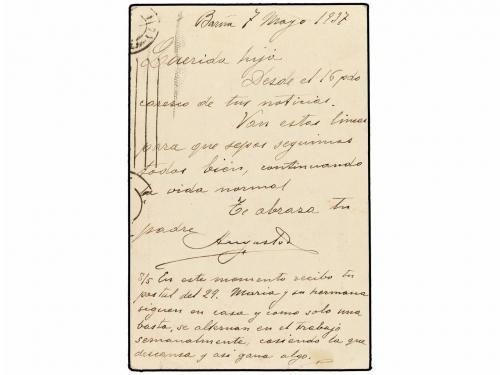 Barna 7 Mayo 1937
Querida hija
Desde el 15 pdo
caresco de tus noticias.
Van estas lineas
para que sepas seguimos
todos bien, continuando
la vida normal
Te abraza tu
padre
Augusto
8/5 En este momento recibo tu
postal del 29. Maria y su hermana
siguen en casa y como solo una
basta, se alternan en el trabajo
semanalmente, cosiendo la que
descansa y asi gana algo.